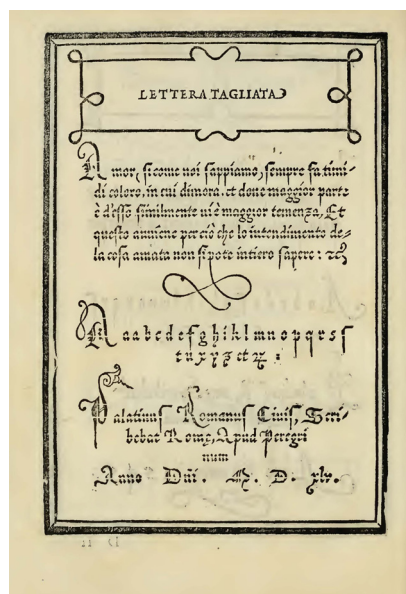 LETTERA TAGLIATA
Amor, si come noi sappiamo, sempre fa timi-
di coloro, in cui dimora. et doue maggior parte
è d'esso similmente ui è maggior temenza, Et
questo auuiene perciò che lo intendimento de-
la cosa amata non si pote intiero sapere: &c
A a a b c d e f g h i k l m n o p q r s ſ
t u x y z et &:
Palatinus Romanus Ciuis, Scri-
bebat Romę, Apud Peregri
num
Anno Dñi. M. D. xlv.